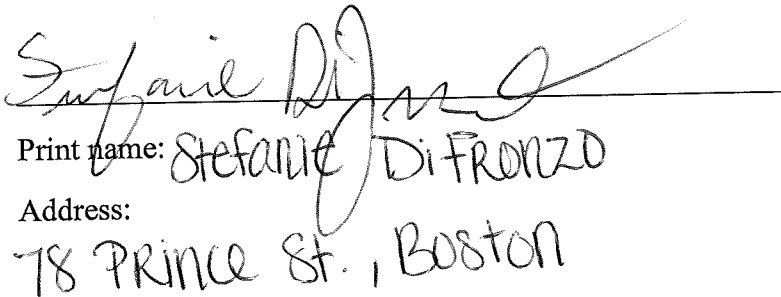 Stefanie DiFronzo
Print name: Stefanie DiFRonzo
Address:
78 PRince St., Boston